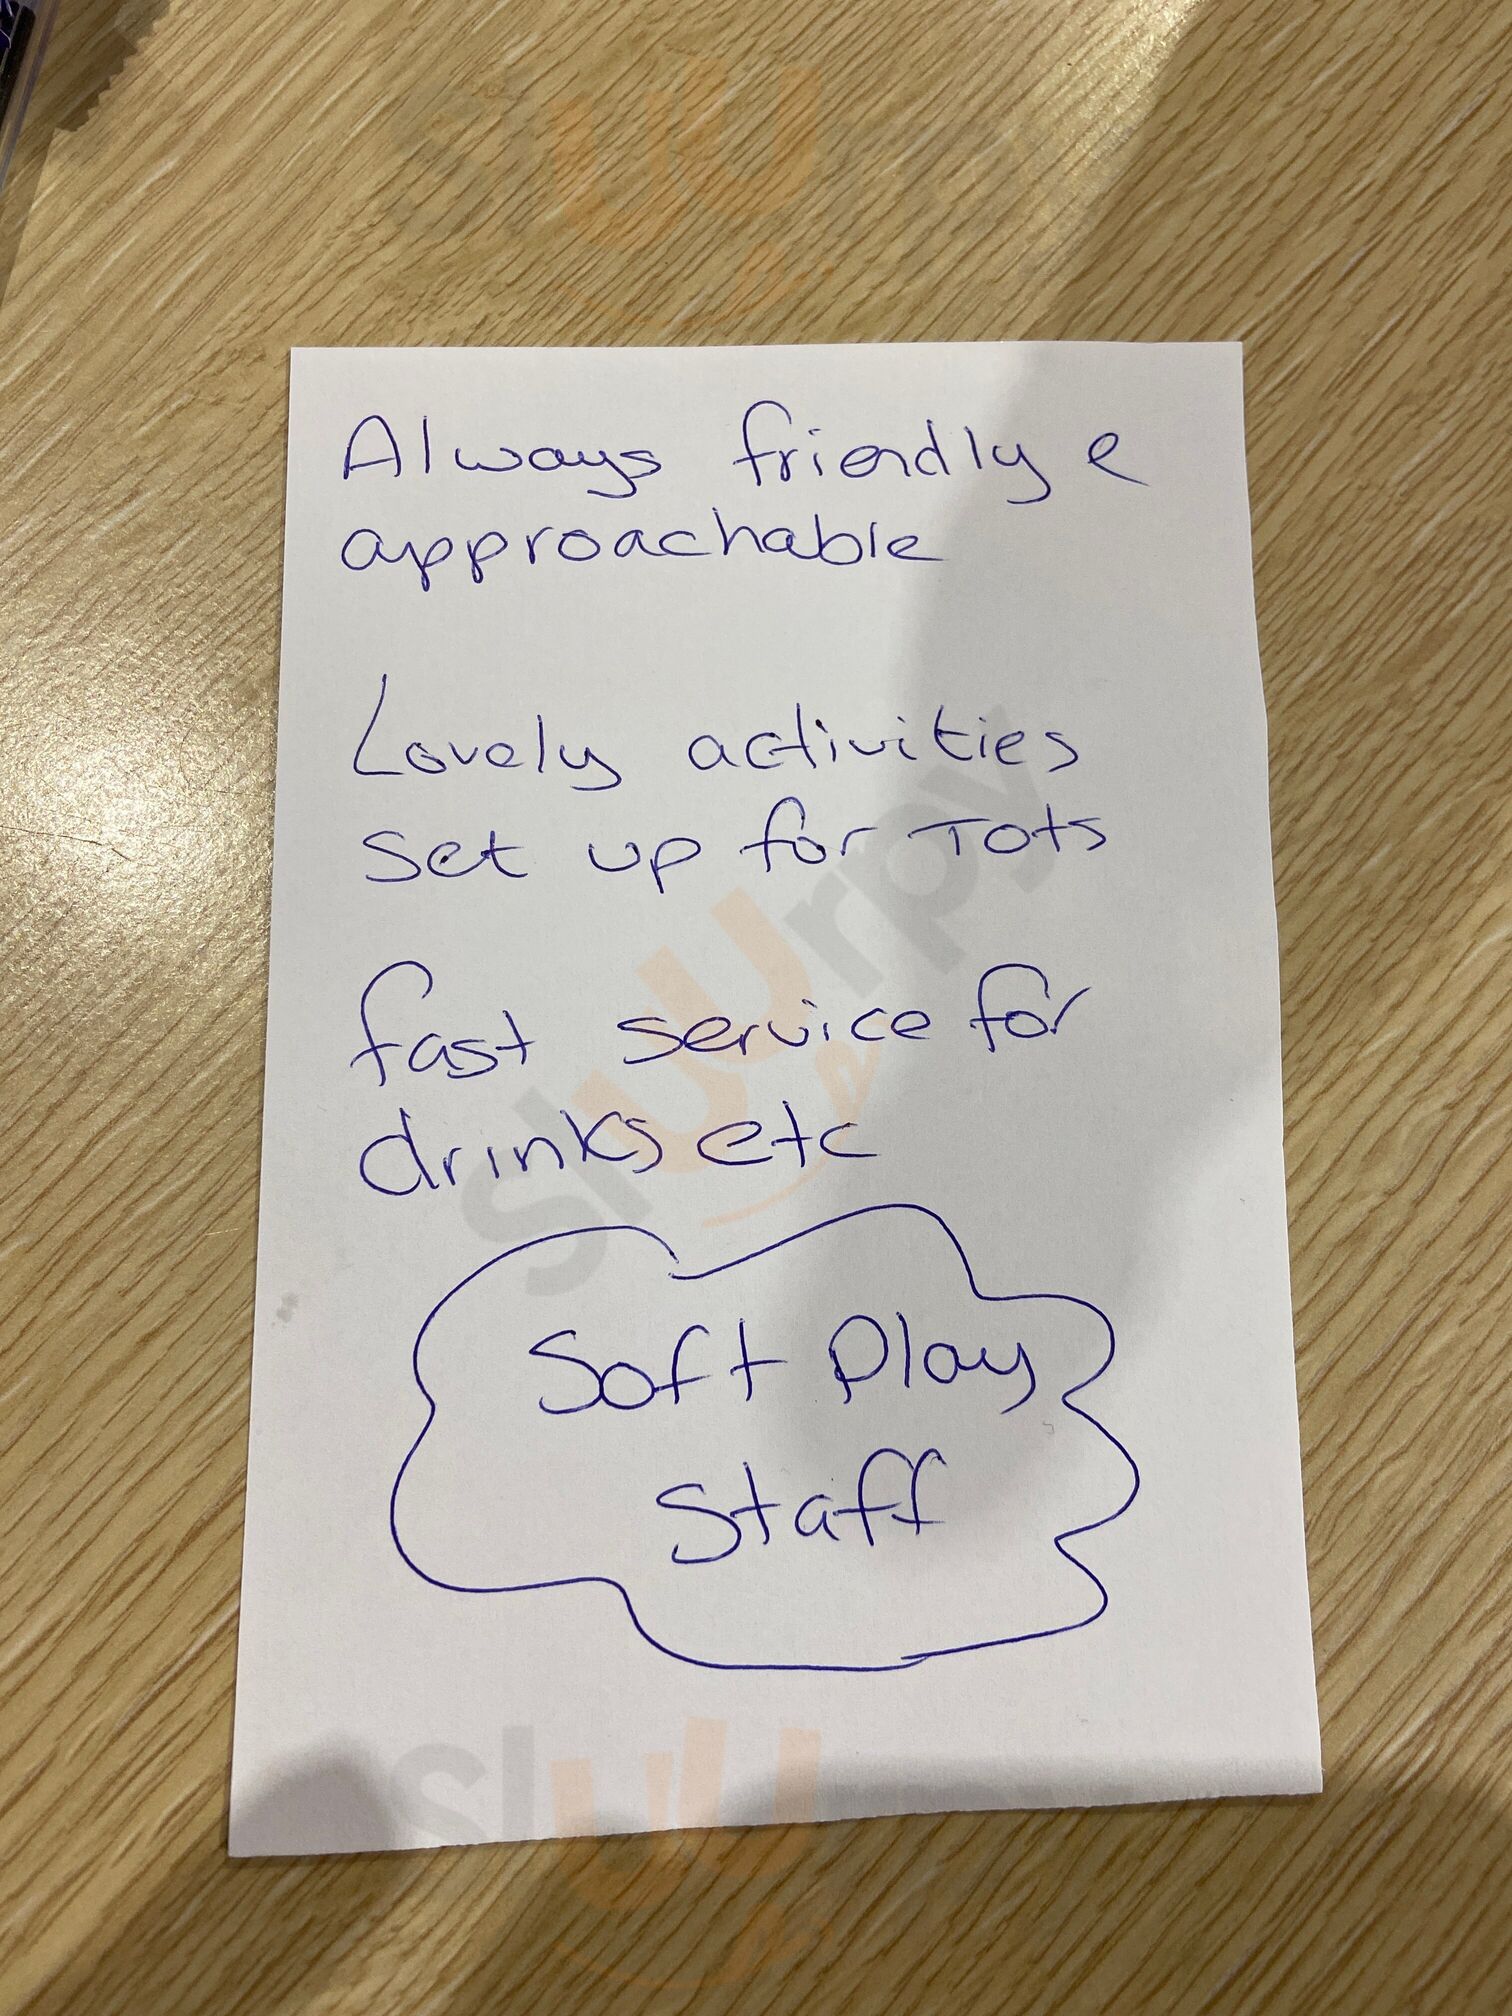 Always friendly e
approachable
Lovely activities
set up for Tots
fast service for
drinks etc
Soft Play
Staff
Sluurpy